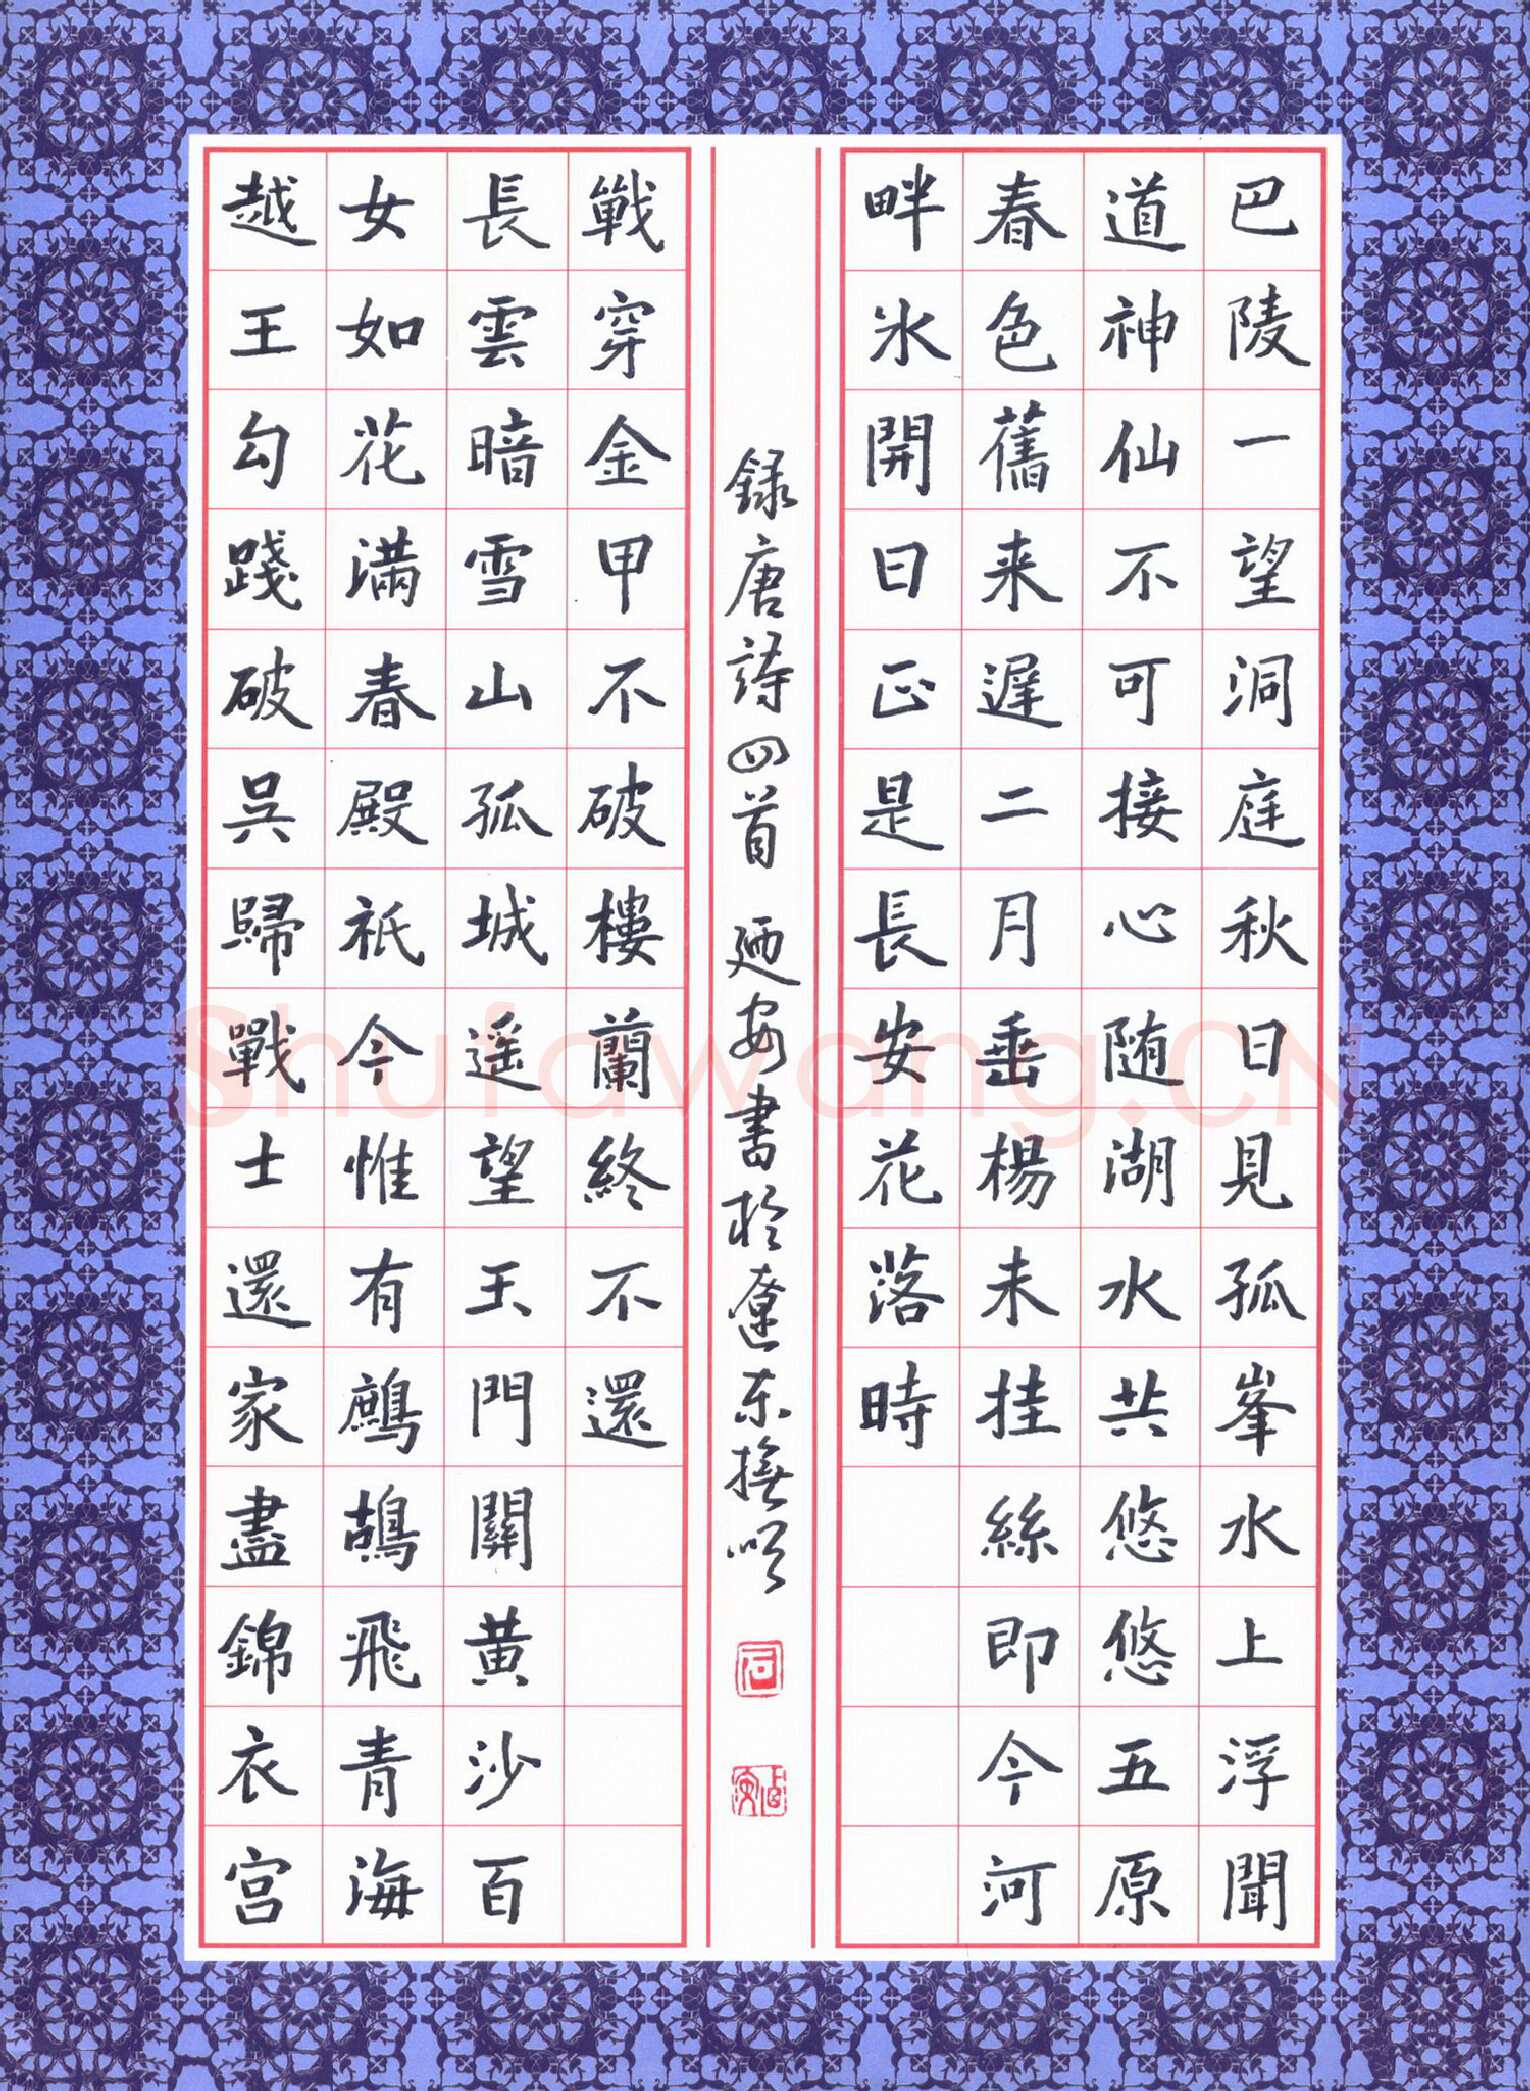 巴陵一望洞庭秋日見孤峯水上浮聞
道神仙不可接心随湖水共悠悠五原
春色舊来遲二月垂楊未挂絲即今河
畔氷開日正是長安花落時
越王勾踐破吳歸戰士還家盡錦衣宮
女如花滿春殿祇今惟有鷓鴣飛青海
長雲暗雪山孤城遥望玉門關黄沙百
戰穿金甲不破樓蘭終不還
録唐詩四首 廼安書於遼東撫順
石
Shufawang.CN